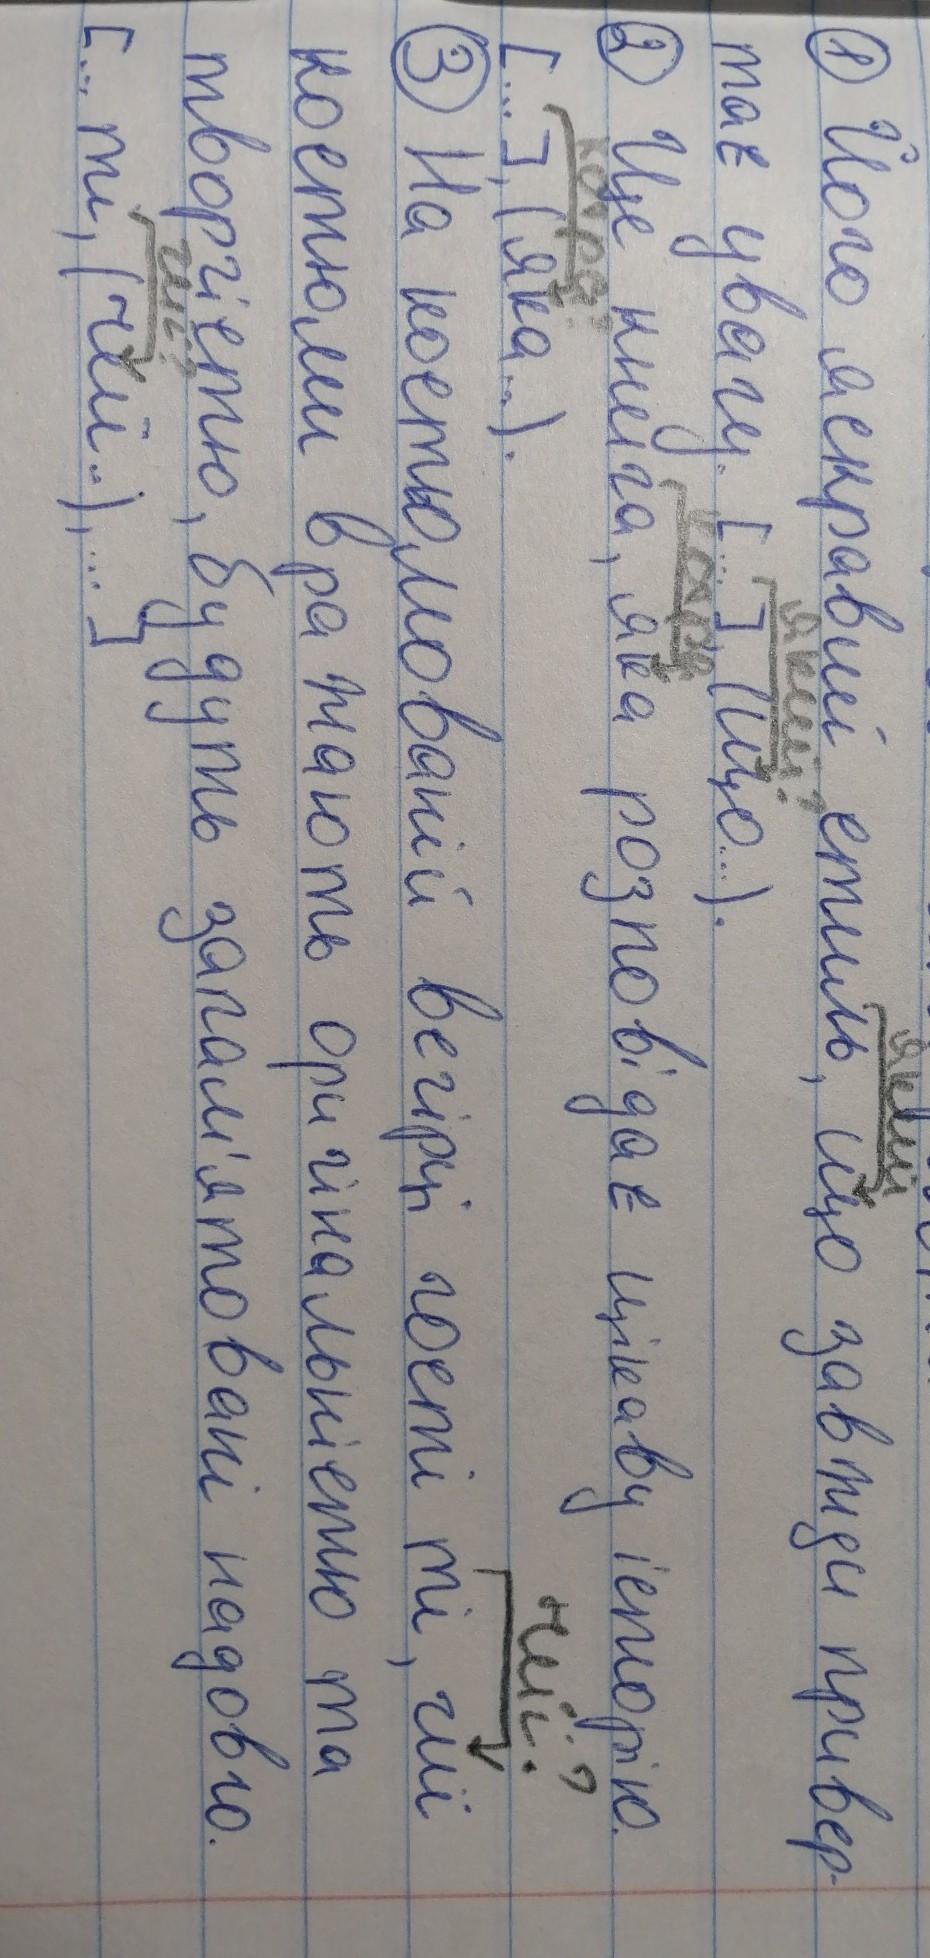 який
① Його яскравий стиль, що завжди привер-
який?
тає увагу. [...] (що...).
котра
② Це книга, яка розповідає цікаву історію.
котра?
[...], (яка...).
чиї?
③ На костюмованій вечірці гості ті, чиї
костюми вражають оригінальністю та
творчістю, будуть запам'ятовані надовго.
чиї?
[... ті, (чиї..), ...]